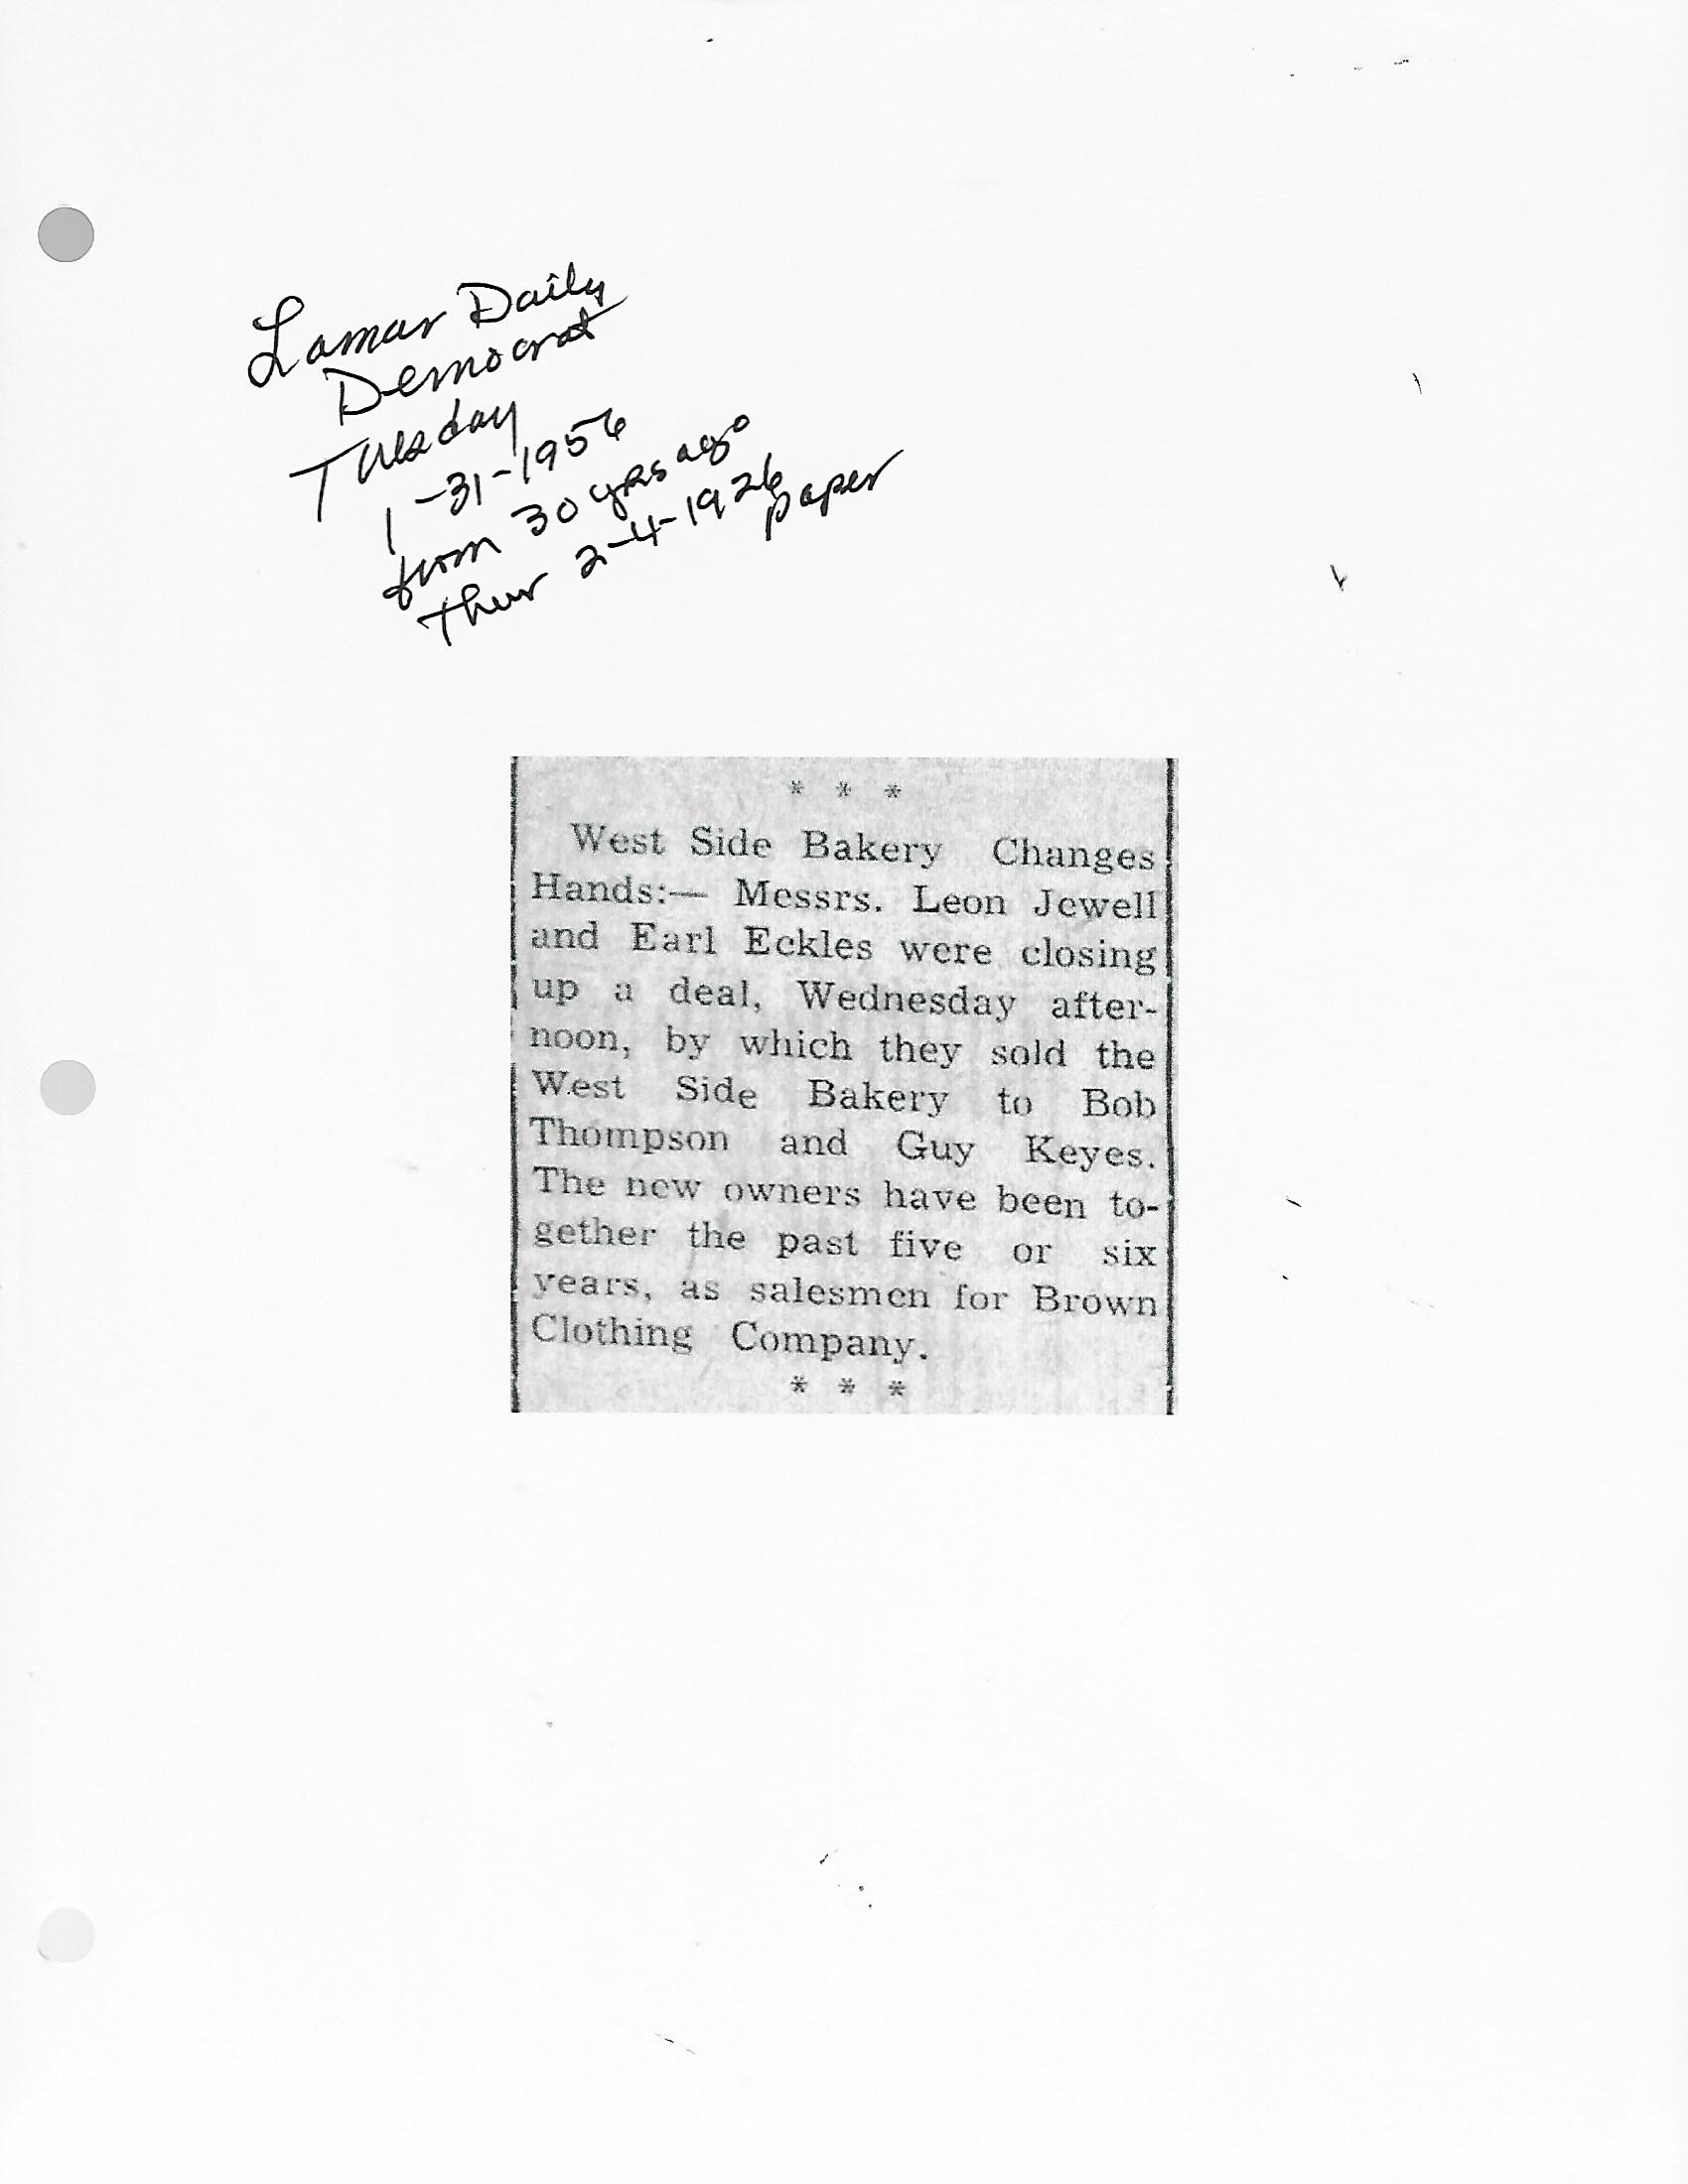 Lamar Daily
Democrat
Tuesday
1-31-1956
from 30 yrs ago
Thur 2-4-1926
paper
* * *
West Side Bakery Changes
Hands:— Messrs. Leon Jewell
and Earl Eckles were closing
up a deal, Wednesday after-
noon, by which they sold the
West Side Bakery to Bob
Thompson and Guy Keyes.
The new owners have been to-
gether the past five or six
years, as salesmen for Brown
Clothing Company.
* * *